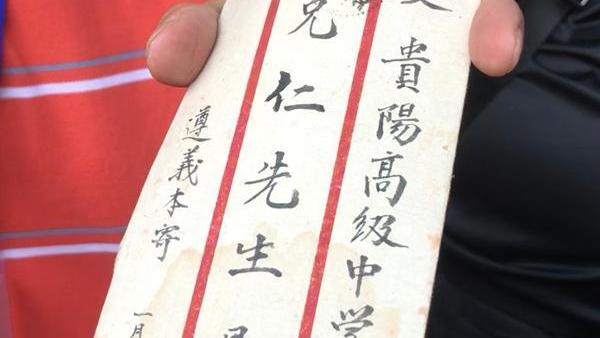 貴陽高級中学
仁先生
遵義本寄 一月